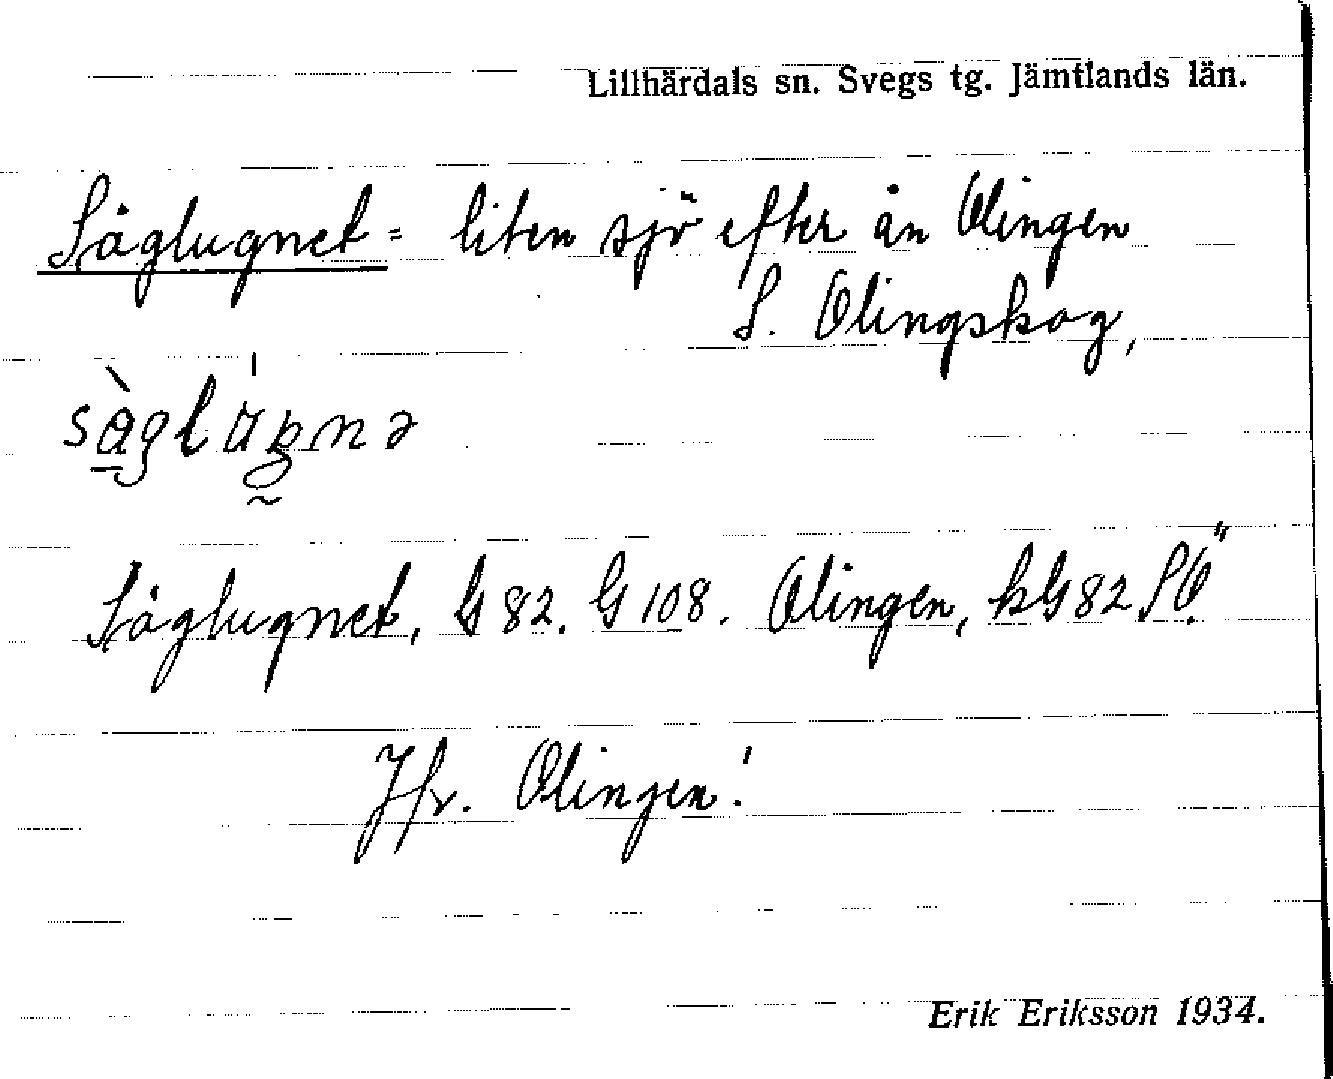 Lillhärdals sn. Svegs tg. Jämtlands län.
Såglugnet = liten sjö efter ån Olingen
S. Olingskog,
Såglugnet, G 82. G 108. Olingen, kG 82 SÖ.
Jfr. Olingen!
Erik Eriksson 1934.